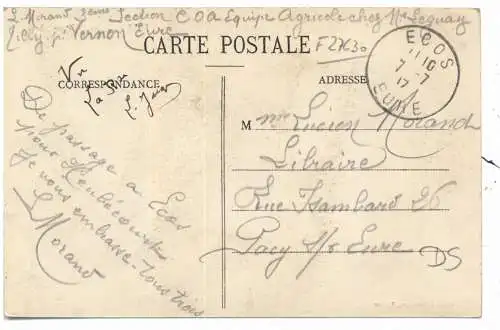 L. Morand 3ème Section COA Equipe Agricole chez Mr Lequay
Tilly pr Vernon Eure
CARTE POSTALE
F2763o
ECOS
11 10
7 -7
17
EURE
CORRESPONDANCE
ADRESSE
Vr
La Pr
De passage a Ecos
pour
Je vous embrasse tous trois
L Morand
Mme Lucien Morand
Libraire
Rue Isambard 26
Pacy s/r Eure
DS